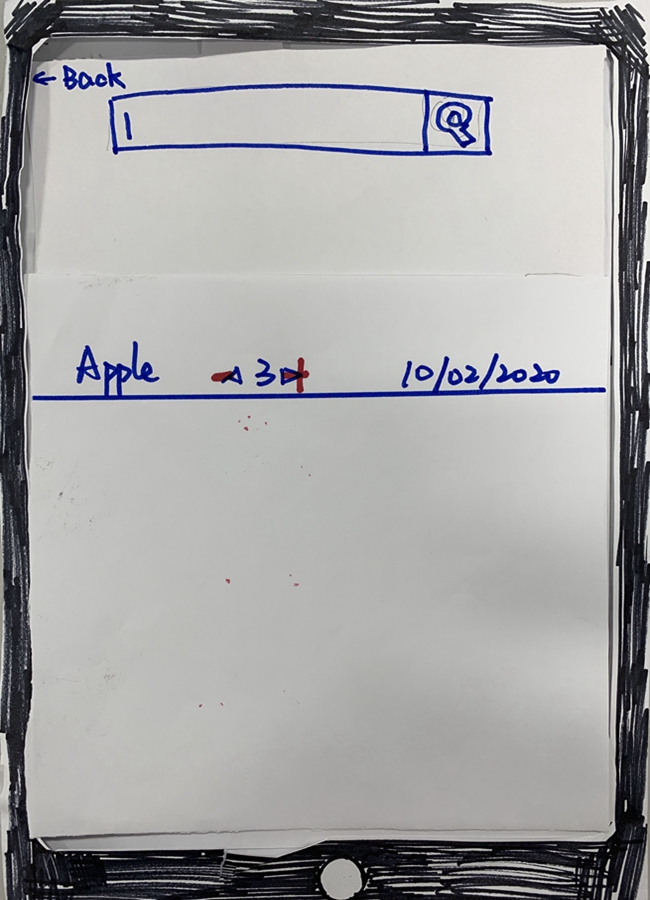 ← Back
Apple - ◁ 3 ▷ + 10/02/2020